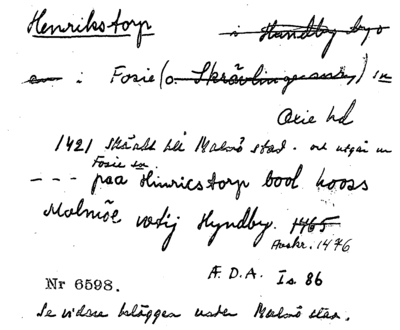 Henrikstorp i Hyndby by o
en i Fosie (o. Skrävlinge snr) sn
Oxie hd
1421 skänkt till Malmö stad. och utgår ur
Fosie sn.
--- paa Hinricstorp bool hooss
Malmöe vtij Hyndby. 1465
Avskr. 1476
Nr 6598. Æ. D. A. I s 86
Se vidare beläggen under Malmö stad.